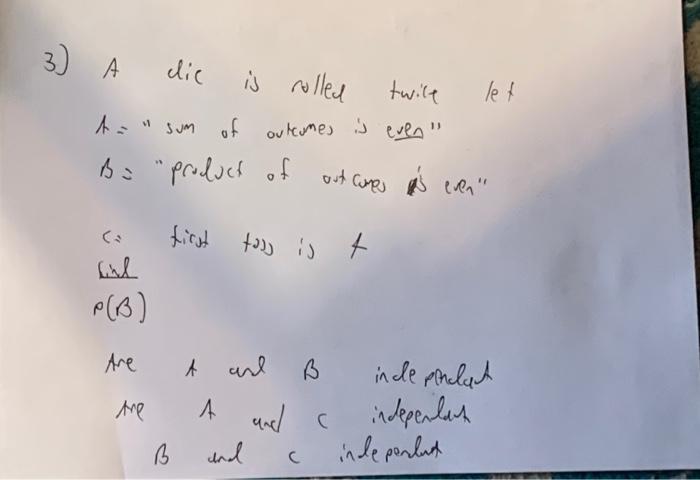 3) A die is rolled twice let
A = " sum of outcomes is even"
B = "product of outcomes is even"
C = first toss is
Find
P(B)
Are A and B independent
Are A and C independent
B and C independent